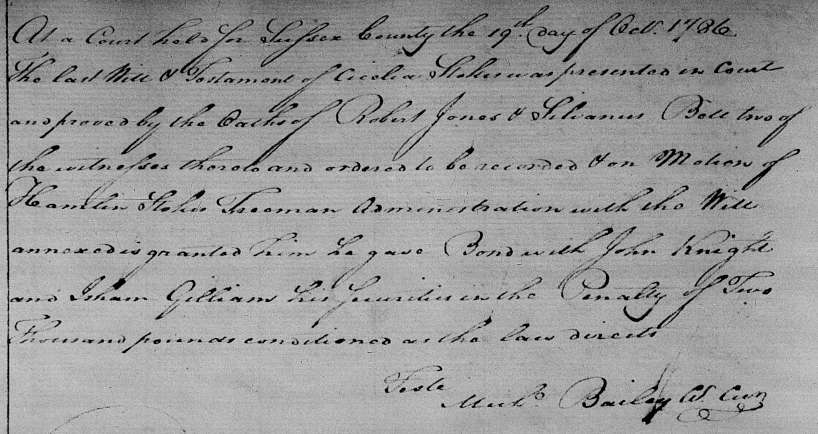 At a Court held for Sussex County the 19th day of Octr. 1786
The last Will & Testament of Cicelia Stokes was presented in Court
and proved by the Oaths of Robert Jones & Silvanus Bell two of
the witnesses thereto and ordered to be recorded & on Motion of
Hamlin Stokes Freeman Administration with the Will
annexed is granted him he gave Bond with John Knight
and Isham Gilliam his Securities in the Penalty of Two
Thousand pounds conditioned as the law directs
Teste
Michl. Bailey Cl. Cur